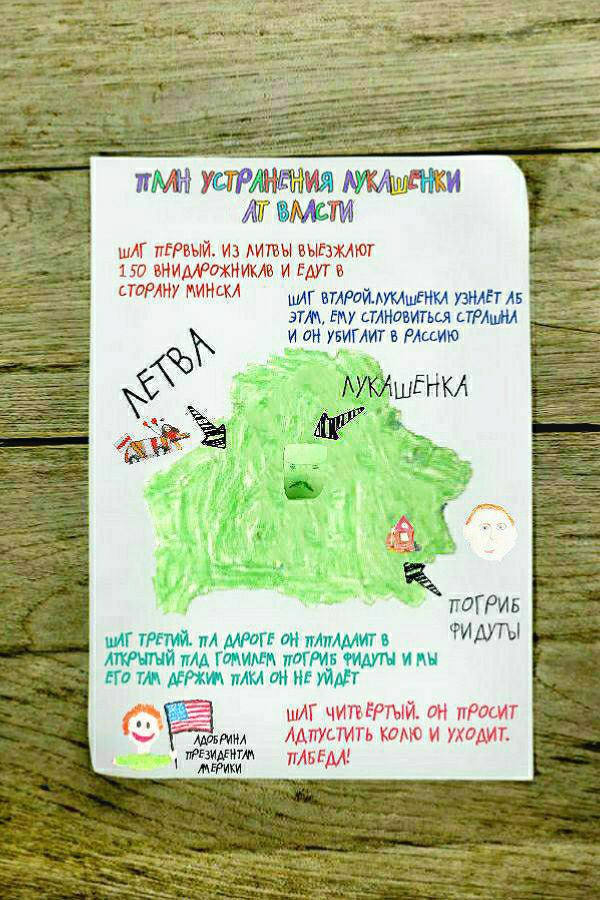 ПЛАН УСТРАНЕНИЯ ЛУКАШЕНКИ
ЛТ ВЛАСТИ
ШАГ ПЕРВЫЙ. ИЗ ЛИТВЫ ВЫЕЗЖАЮТ
150 ВНИДАРОЖНИКАВ И ЕДУТ В
СТОРАНУ МИНСКА
ШАГ ВТАРОЙ.ЛУКАШЕНКА УЗНАЁТ АБ
ЭТАМ, ЕМУ СТАНОВИТЬСЯ СТРАШНА
И ОН УБИГАИТ В РАССИЮ
ЛЕТВА
ЛУКАШЕНКА
ПОГРИБ
ФИДУТЫ
ШАГ ТРЕТИЙ. ПА ДАРОГЕ ОН ПАПАДАИТ В
АТКРЫТЫЙ ПАД ГОМИЛЕМ ПОГРИБ ФИДУТЫ И МЫ
ЕГО ТАМ ДЕРЖИМ ПАКА ОН НЕ УЙДЁТ
ШАГ ЧИТВЁРТЫЙ. ОН ПРОСИТ
АДПУСТИТЬ КОЛЮ И УХОДИТ.
ПАБЕДА!
АДОБРИНА
ПРЕЗИДЕНТАМ
АМЕРИКИ